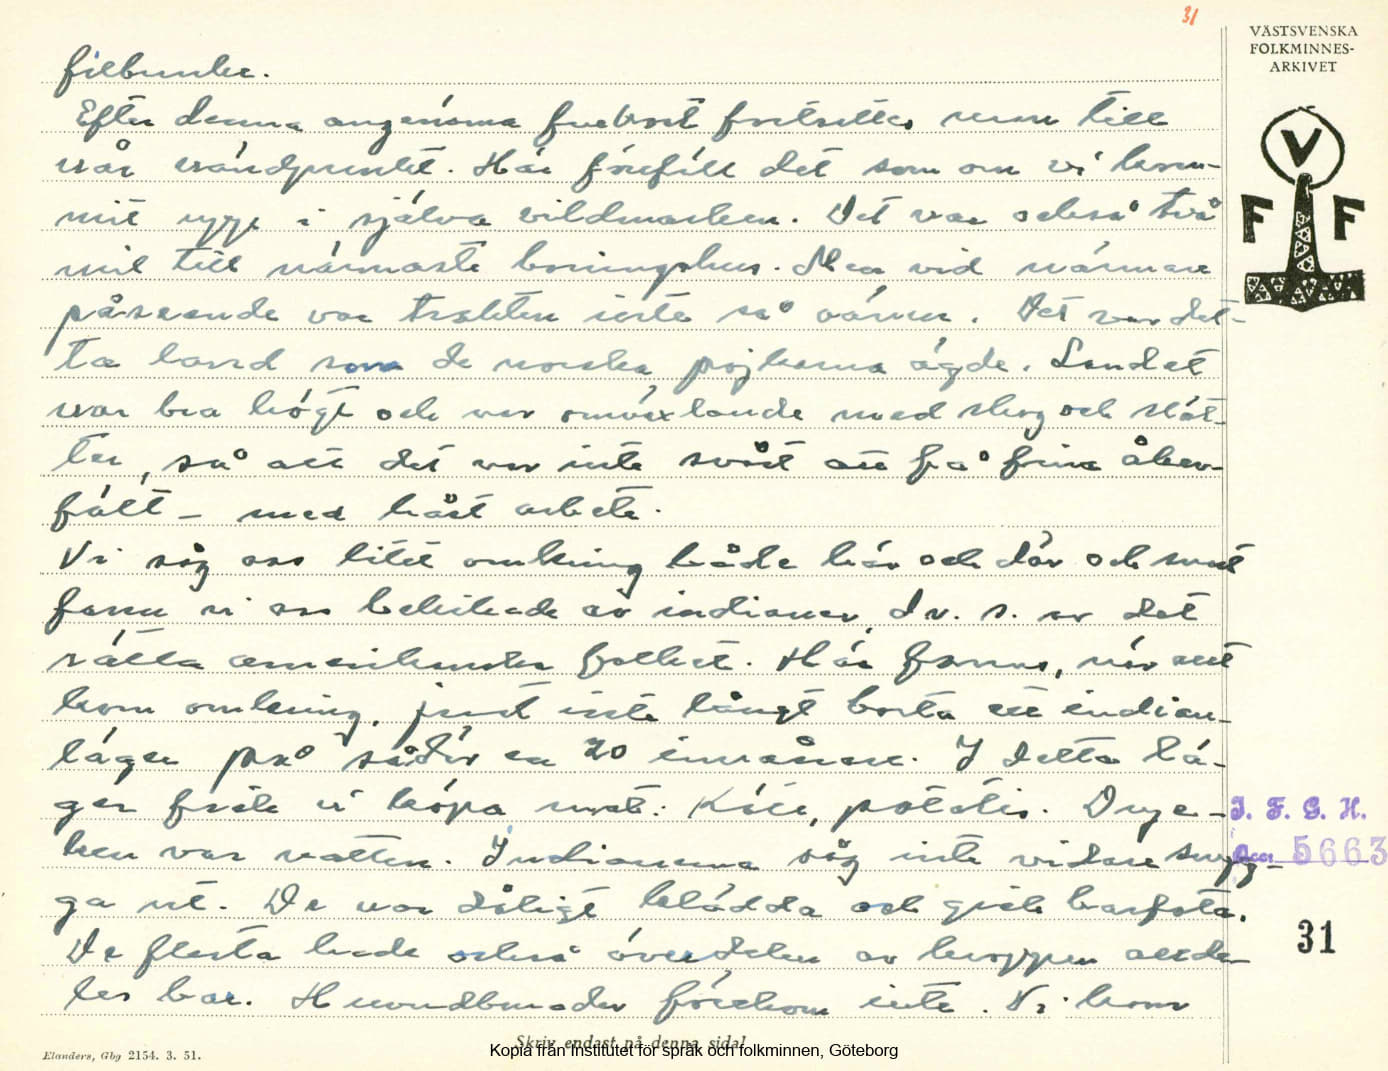 31
VÄSTSVENSKA
FOLKMINNES-
ARKIVET
V
F F
filbunke.
Efter denna angenäma frukost fortsattes resan till
vår vändpunkt. Här föreföll det som om vi kom-
mit upp i själva vildmarken. Det var också två
mil till närmaste boningshus. Men vid närmare
påseende var trakten inte så värre. Det var det-
ta land som de norska pojkarna ägde. Landet
var bra högt och var omväxlande med skog och slät-
ter, så att det var inte svårt att få fina åker-
fält – med häst arbete.
Vi såg oss litet omkring både här och där och snart
funno vi oss belägrade av indianer, d.v.s. av det
rätta amerikanska folket. Här fanns, när allt
kom omkring, just inte långt borta ett indian-
läger på sådär en 20 invånare. I detta lä-
ger fick vi köpa mat: Kött, potatis. Dryc-
ken var vatten. Indianerna såg inte vidare snyg-
ga ut. De var dåligt klädda och gick barfota.
De flesta hade också överdelen av kroppen allde-
les bar. Huvudbonader förekom inte. Vi kom
I. F. G. H.
Acc. 5663
31
Skriv endast på denna sida!
Elanders, Gbg 2154. 3. 51.
Kopia från Institutet för språk och folkminnen, Göteborg